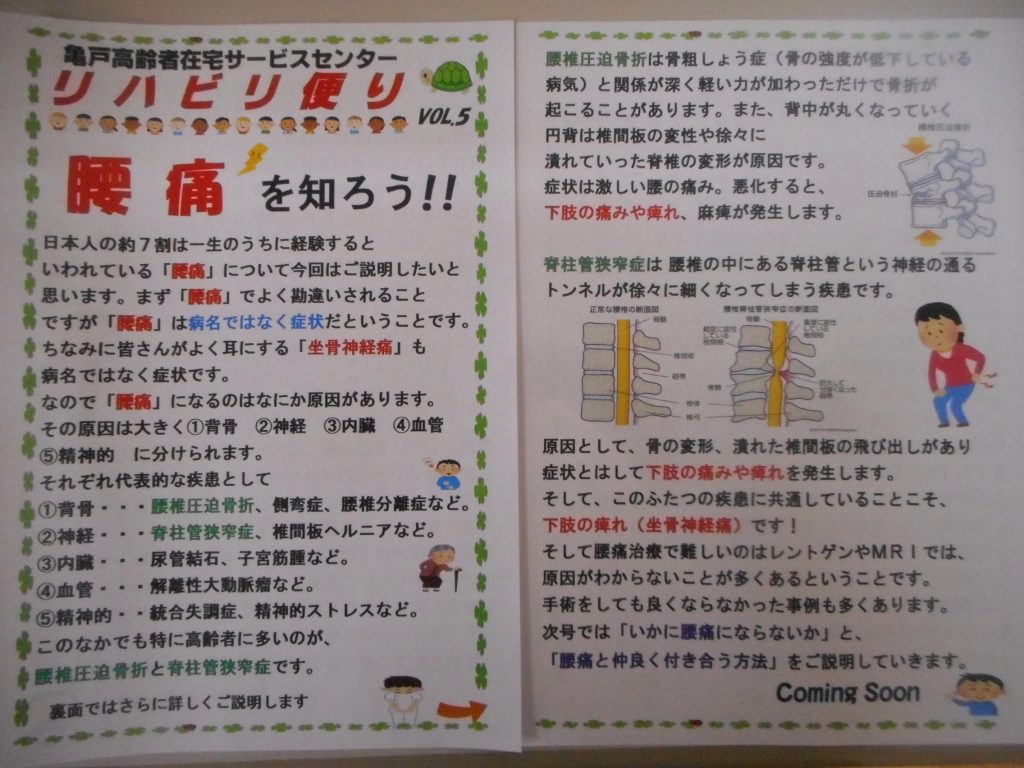 亀戸高齢者在宅サービスセンター
リハビリ便り
VOL.5
腰痛を知ろう!!
日本人の約7割は一生のうちに経験すると
いわれている「腰痛」について今回はご説明したいと
思います。まず「腰痛」でよく勘違いされること
ですが「腰痛」は病名ではなく症状だということです。
ちなみに皆さんがよく耳にする「坐骨神経痛」も
病名ではなく症状です。
なので「腰痛」になるのはなにか原因があります。
その原因は大きく①背骨 ②神経 ③内臓 ④血管
⑤精神的 に分けられます。
それぞれ代表的な疾患として
①背骨・・・腰椎圧迫骨折、側弯症、腰椎分離症など。
②神経・・・脊柱管狭窄症、椎間板ヘルニアなど。
③内臓・・・尿管結石、子宮筋腫など。
④血管・・・解離性大動脈瘤など。
⑤精神的・・統合失調症、精神的ストレスなど。
このなかでも特に高齢者に多いのが、
腰椎圧迫骨折と脊柱管狭窄症です。
裏面ではさらに詳しくご説明します
腰椎圧迫骨折は骨粗しょう症（骨の強度が低下している
病気）と関係が深く軽い力が加わっただけで骨折が
起こることがあります。また、背中が丸くなっていく
円背は椎間板の変性や徐々に
潰れていった脊椎の変形が原因です。
症状は激しい腰の痛み。悪化すると、
下肢の痛みや痺れ、麻痺が発生します。
腰椎圧迫骨折
圧迫骨折
脊柱管狭窄症は 腰椎の中にある脊柱管という神経の通る
トンネルが徐々に細くなってしまう疾患です。
正常な腰椎の断面図
脊髄
椎間板
靭帯
椎体
椎弓
腰椎脊柱管狭窄症の断面図
脊髄
骨棘
原因として、骨の変形、潰れた椎間板の飛び出しがあり
症状とはして下肢の痛みや痺れを発生します。
そして、このふたつの疾患に共通していることこそ、
下肢の痺れ（坐骨神経痛）です！
そして腰痛治療で難しいのはレントゲンやMRIでは、
原因がわからないことが多くあるということです。
手術をしても良くならなかった事例も多くあります。
次号では「いかに腰痛にならないか」と、
「腰痛と仲良く付き合う方法」をご説明していきます。
Coming Soon